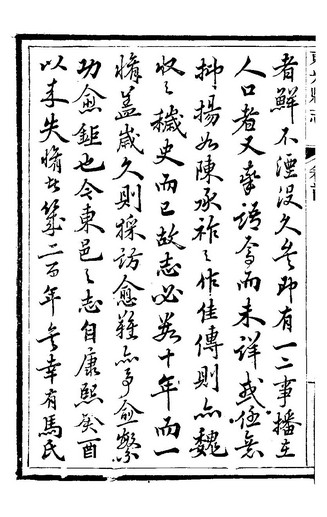 東光縣志 卷首
者鮮不湮沒久矣即有一二事播在
人口者又率語焉而未詳或任意
抑揚如陳承祚之作佳傳則亦魏
收之穢史而已故志必十年而一
脩蓋歲久則採訪愈難亦事愈繁
功愈鉅也今東邑之志自康熙癸酉
以来失脩幾二百年矣幸有馬氏